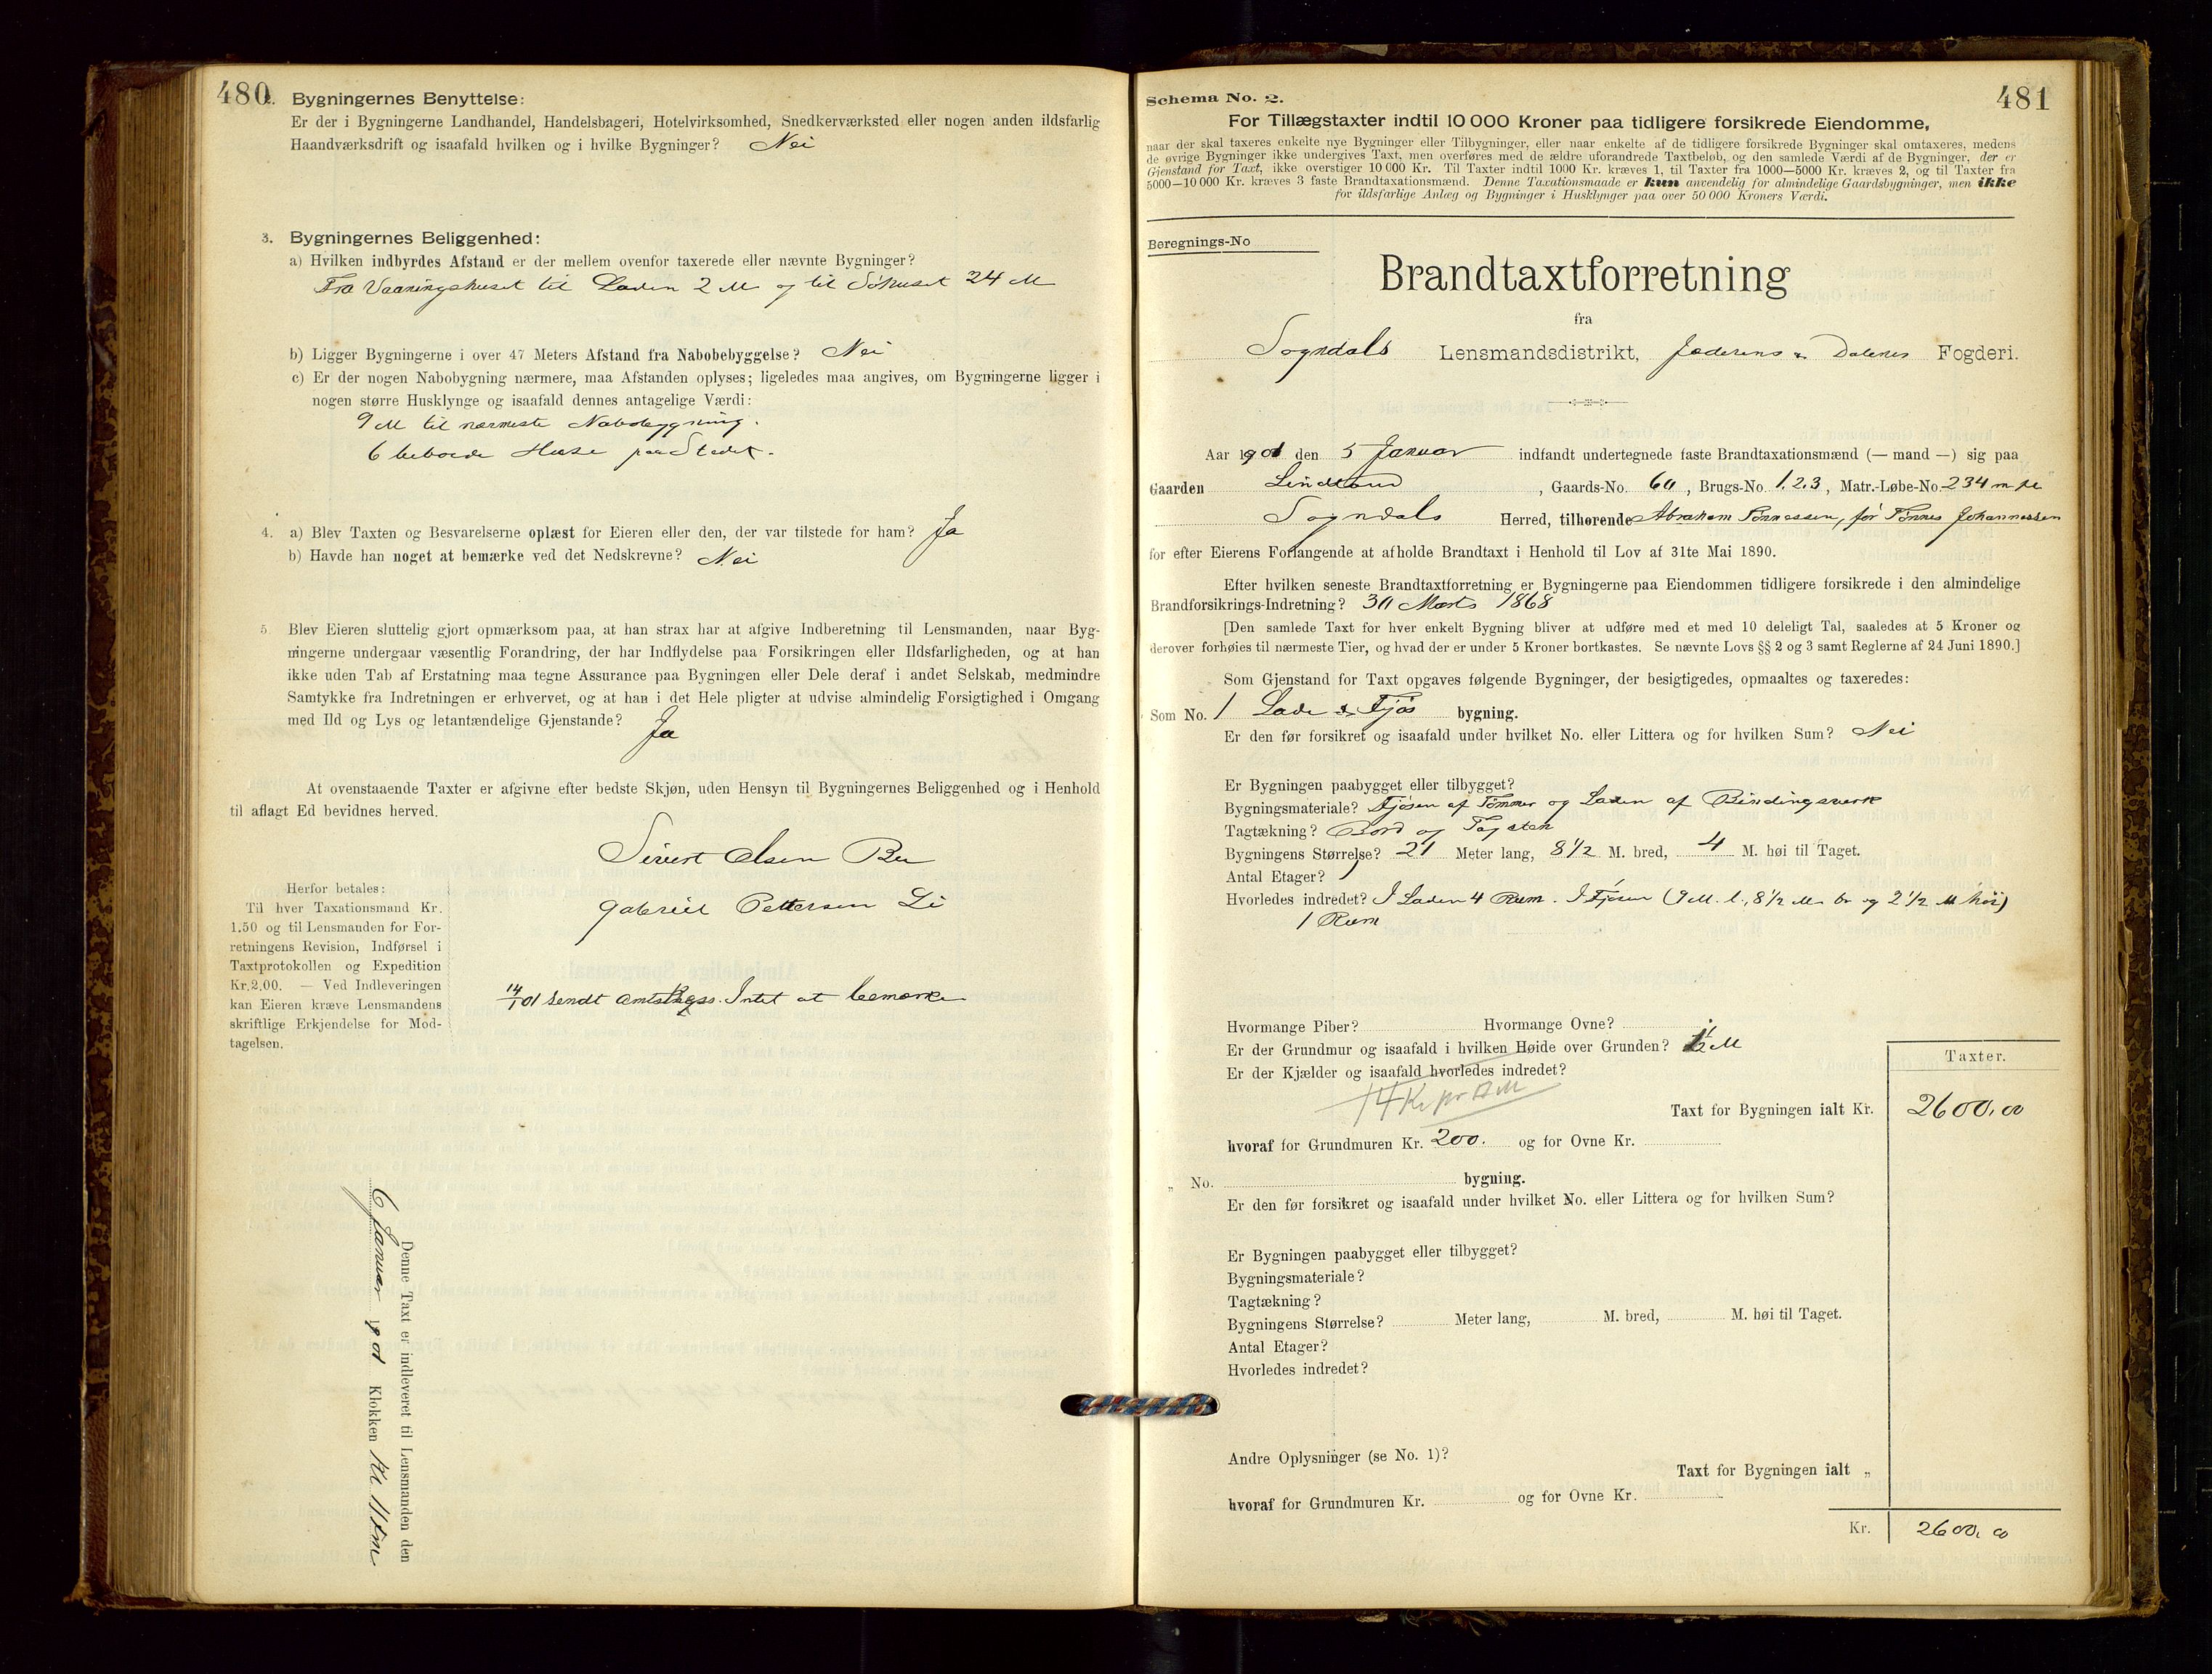 480
2. Bygningernes Benyttelse:
Er der i Bygningerne Landhandel, Handelsbageri, Hotelvirksomhed, Snedkerværksted eller nogen anden ildsfarlig
Haandværksdrift og isaafald hvilken og i hvilke Bygninger? Nei
3. Bygningernes Beliggenhed:
a) Hvilken indbyrdes Afstand er der mellem ovenfor taxerede eller nævnte Bygninger?
Fra Vaaningshuset til Laden 2 M og til Söhuset 24 M
b) Ligger Bygningerne i over 47 Meters Afstand fra Nabobebyggelse? Nei
c) Er der nogen Nabobygning nærmere, maa Afstanden oplyses; ligeledes maa angives, om Bygningerne ligger i
nogen større Husklynge og isaafald dennes antagelige Værdi:
9 M til nærmeste Nabobygning.
6 beboede Huse paa Stedet.
4. a) Blev Taxten og Besvarelserne oplæst for Eieren eller den, der var tilstede for ham? Ja
b) Havde han noget at bemærke ved det Nedskrevne? Nei
5. Blev Eieren sluttelig gjort opmærksom paa, at han strax har at afgive Indberetning til Lensmanden, naar Byg-
ningerne undergaar væsentlig Forandring, der har Indflydelse paa Forsikringen eller Ildsfarligheden, og at han
ikke uden Tab af Erstatning maa tegne Assurance paa Bygningen eller Dele deraf i andet Selskab, medmindre
Samtykke fra Indretningen er erhvervet, og at han i det Hele pligter at udvise almindelig Forsigtighed i Omgang
med Ild og Lys og letantændelige Gjenstande? Ja
At ovenstaaende Taxter er afgivne efter bedste Skjøn, uden Hensyn til Bygningernes Beliggenhed og i Henhold
til aflagt Ed bevidnes herved.
Sivert Olsen Bu
Gabriel Pettersen Li
Herfor betales:
Til hver Taxationsmand Kr.
1.50 og til Lensmanden for For-
retningens Revision, Indførsel i
Taxtprotokollen og Expedition
Kr. 2.00. — Ved Indleveringen
kan Eieren kræve Lensmandens
skriftlige Erkjendelse for Mod-
tagelsen.
14/1 01 sendt Intet at bemærke
Denne Taxt er indleveret til Lensmanden den
6 Januar 1901 Klokken
481
Schema No. 2.
For Tillægstaxter indtil 10 000 Kroner paa tidligere forsikrede Eiendomme,
naar der skal taxeres enkelte nye Bygninger eller Tilbygninger, eller naar enkelte af de tidligere forsikrede Bygninger skal omtaxeres, medens
de øvrige Bygninger ikke undergives Taxt, men overføres med de ældre uforandrede Taxtbeløb, og den samlede Værdi af de Bygninger, der er
Gjenstand for Taxt, ikke overstiger 10 000 Kr. Til Taxter indtil 1000 Kr. kræves 1, til Taxter fra 1000—5000 Kr. kræves 2, og til Taxter fra
5000—10 000 Kr. kræves 3 faste Brandtaxationsmænd. Denne Taxationsmaade er kun anvendelig for almindelige Gaardsbygninger, men ikke
for ildsfarlige Anlæg og Bygninger i Husklynger paa over 50 000 Kroners Værdi.
Beregnings-No
Brandtaxtforretning
fra
Sogndals Lensmandsdistrikt, Jæderens & Dalenes Fogderi.
Aar 1901 den 5 Januar indfandt undertegnede faste Brandtaxationsmænd (— mand —) sig paa
Gaarden Lindland, Gaards-No. 60, Brugs-No. 1.2.3, Matr.-Løbe-No. 234 m fl
Sogndals Herred, tilhørende Abraham Tønnessen, før Tønnes Johannessen
for efter Eierens Forlangende at afholde Brandtaxt i Henhold til Lov af 31te Mai 1890.
Efter hvilken seneste Brandtaxtforretning er Bygningerne paa Eiendommen tidligere forsikrede i den almindelige
Brandforsikrings-Indretning? 30 Marts 1868
[Den samlede Taxt for hver enkelt Bygning bliver at udføre med et med 10 deleligt Tal, saaledes at 5 Kroner og
derover forhøies til nærmeste Tier, og hvad der er under 5 Kroner bortkastes. Se nævnte Lovs §§ 2 og 3 samt Reglerne af 24 Juni 1890.]
Som Gjenstand for Taxt opgaves følgende Bygninger, der besigtigedes, opmaaltes og taxeredes:
Som No. 1 Lade & Fjøs bygning.
Er den før forsikret og isaafald under hvilket No. eller Littera og for hvilken Sum? Nei
Er Bygningen paabygget eller tilbygget?
Bygningsmateriale? Fjøsen af Tømmer og Laden af Bindingsverk
Tagtækning? Bord og Tagsten
Bygningens Størrelse? 21 Meter lang, 8 1/2 M. bred, 4 M. høi til Taget.
Antal Etager? 1
Hvorledes indredet? I Laden 4 Rum. I Fjøsen (9 M. l., 8 1/2 M br og 2 1/2 M høi)
1 Rum
Hvormange Piber? Hvormange Ovne?
Er der Grundmur og isaafald i hvilken Høide over Grunden? 1/2 M
Er der Kjælder og isaafald hvorledes indredet?
14 Kr pr □ M
Taxter.
Taxt for Bygningen ialt Kr. 2600,00
hvoraf for Grundmuren Kr. 200. og for Ovne Kr.
„ No. bygning.
Er den før forsikret og isaafald under hvilket No. eller Littera og for hvilken Sum?
Er Bygningen paabygget eller tilbygget?
Bygningsmateriale?
Tagtækning?
Bygningens Størrelse? Meter lang, M. bred, M. høi til Taget.
Antal Etager?
Hvorledes indredet?
Andre Oplysninger (se No. 1)?
Taxt for Bygningen ialt „
hvoraf for Grundmuren Kr. og for Ovne Kr.
Kr. 2600,00